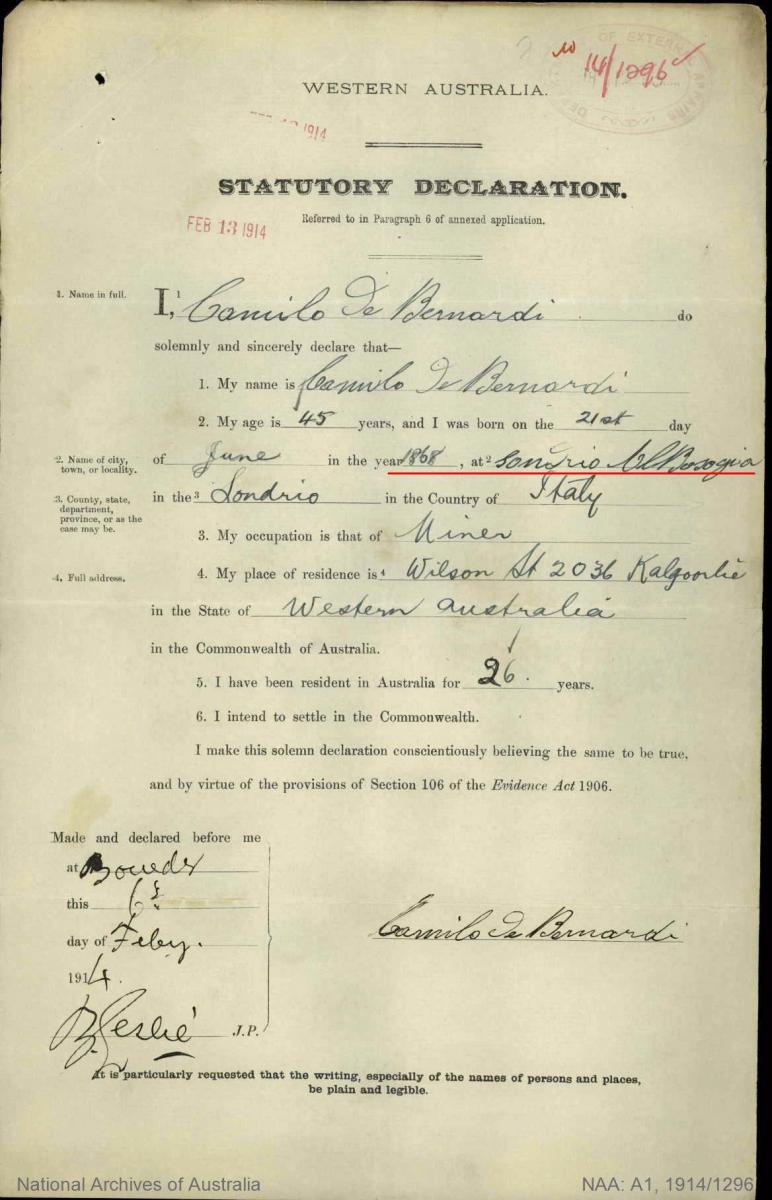 14/1296
WESTERN AUSTRALIA.
1914
STATUTORY DECLARATION.
Referred to in Paragraph 6 of annexed application.
FEB 13 1914
1. Name in full.
I,1 Camilo De Bernardi do
solemnly and sincerely declare that—
1. My name is Camilo De Bernardi
2. My age is 45 years, and I was born on the 21st day
2. Name of city, town, or locality.
of June in the year 1868, at2 Sondrio Albosogia
3. County, state, department, province, or as the case may be.
in the3 Sondrio in the Country of Italy
3. My occupation is that of Miner
4. Full address.
4. My place of residence is4 Wilson St 2036 Kalgoorlie
in the State of Western Australia
in the Commonwealth of Australia.
5. I have been resident in Australia for 26 years.
6. I intend to settle in the Commonwealth.
I make this solemn declaration conscientiously believing the same to be true,
and by virtue of the provisions of Section 106 of the Evidence Act 1906.
Made and declared before me
at Boulder
this 6th
day of Feby.
1914.
Leslie J.P.
Camilo De Bernardi
It is particularly requested that the writing, especially of the names of persons and places,
be plain and legible.
National Archives of Australia
NAA: A1, 1914/1296